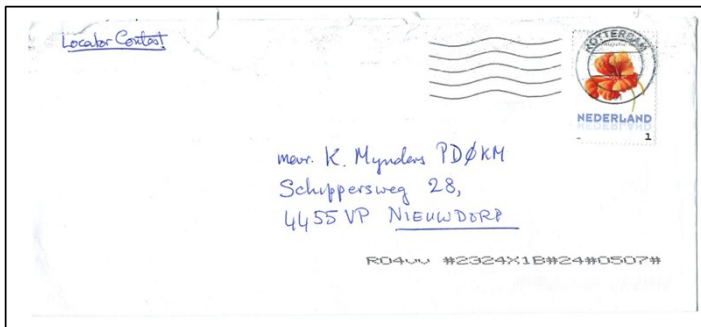 Locator Contest
ROTTERDAM
NEDERLAND
1
mevr. K. Mynders PDØKM
Schippersweg 28,
4455 VP NIEUWDORP
#2324X1B#24#0507#